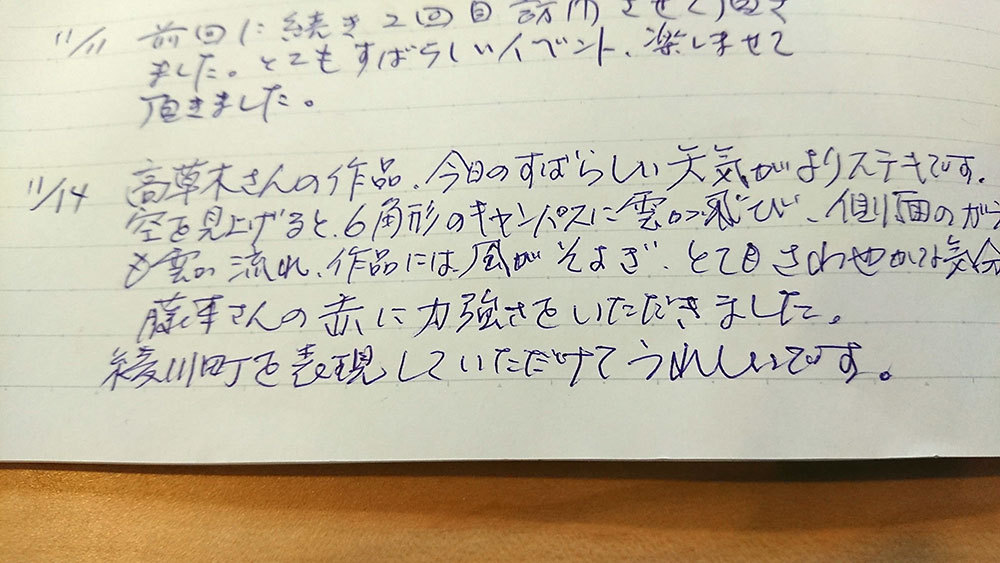 11/11 前回に続き2回目訪問させて頂き
ました。とてもすばらしいイベント、楽しませて
頂きました。
11/14 高草木さんの作品、今日のすばらしい天気がよりステキです。
空を見上げると、6角形のキャンパスに雲が飛び、側面のガラ
も雲が流れ、作品には風がそよぎ、とてもさわやかな気分
さんの赤に力強さをいただきました。
綾川町を表現していただけてうれしいです。